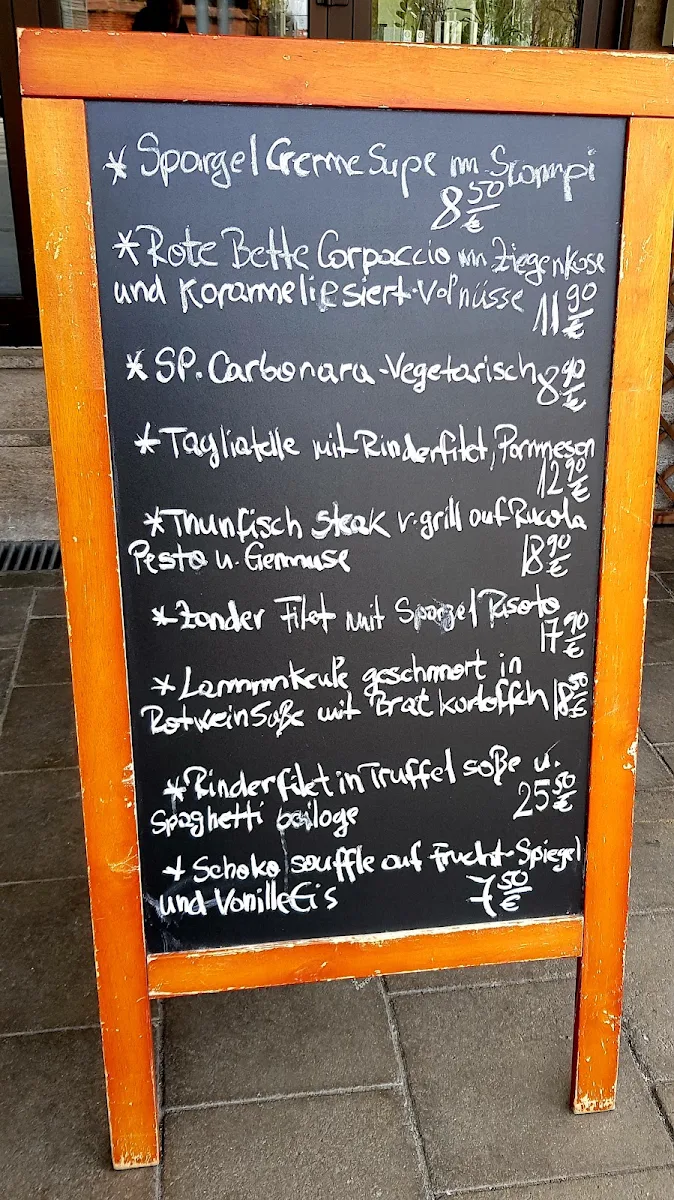 * Spargel Creme Supe m Scampi
8 50 €
* Rote Bette Carpaccio m Ziegenkase
und Karameliesiert Volnüsse 11 90 €
* SP. Carbonara - Vegetarisch 8 90 €
* Tagliatelle mit Rinderfilet, Parmesan
12 90 €
* Thunfisch steak v. grill auf Rucola
Pesto u. Gemuse 18 90 €
* Zander Filet mit Spargel Risoto
17 90 €
* Lammkeule geschmort in
Rotwein Soße mit Brat kartoffeln 18 50 €
* Rinderfilet in Truffel soße u.
Spaghetti beiloge 25 50 €
* Schoko souffle auf Frucht Spiegel
und Vanille Eis 7 50 €